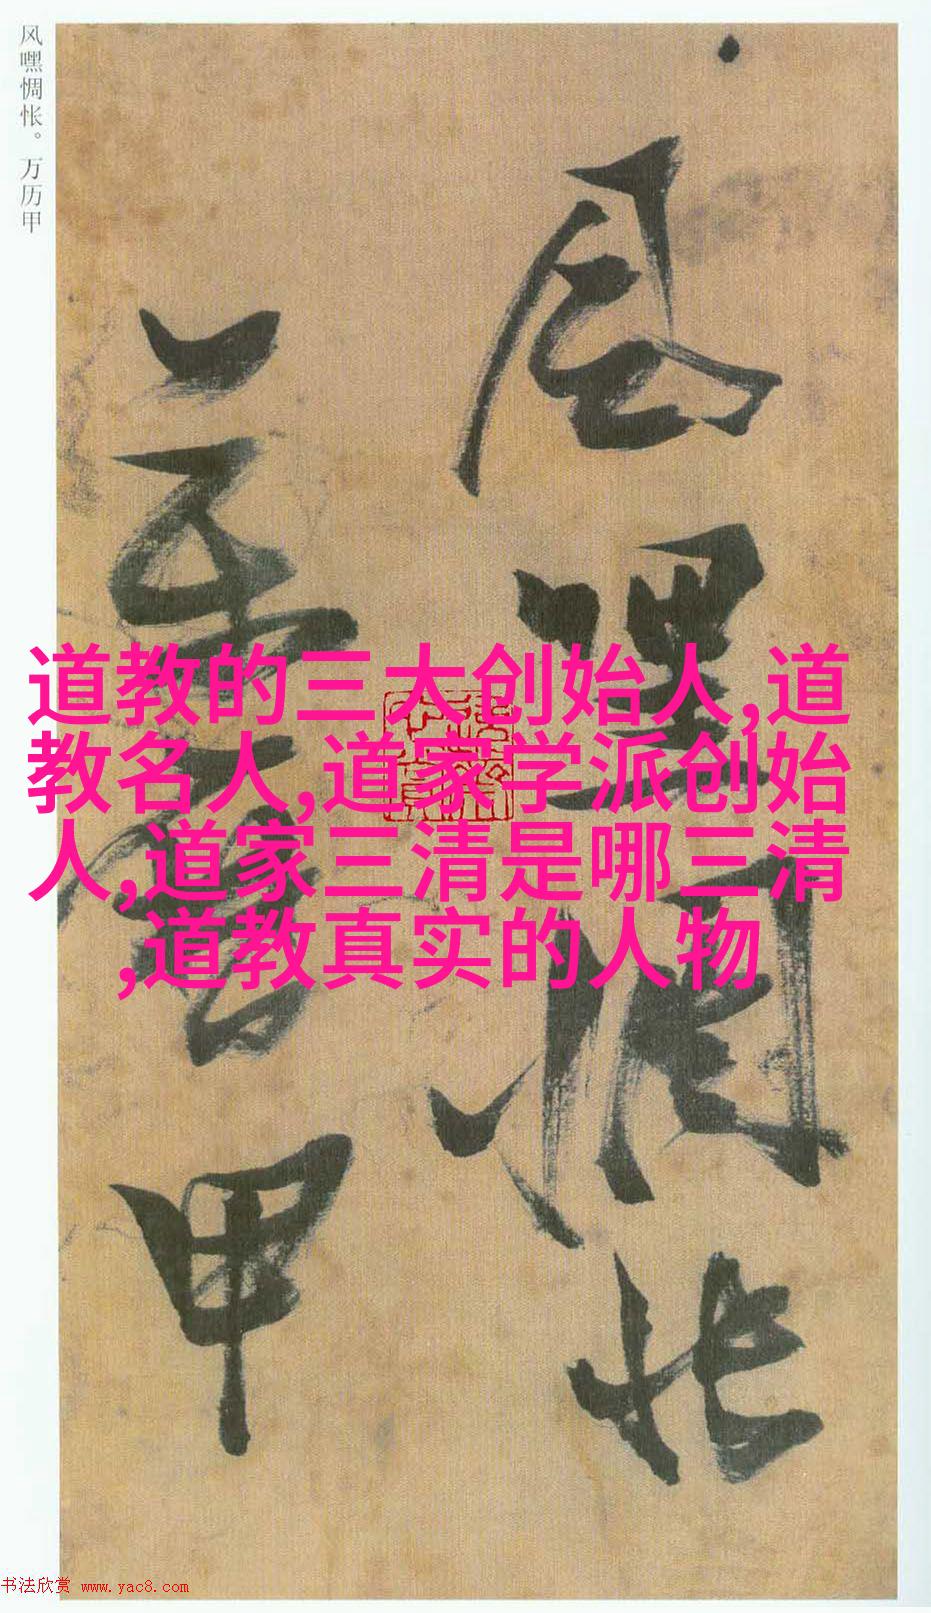 风嘿惆怅。万历甲
风嘿惆怅
万历甲
道教的三大创始人,道
教名人,道家学派创始
人,道家三清是哪三清
,道教真实的人物
书法欣赏 www.yac8.com